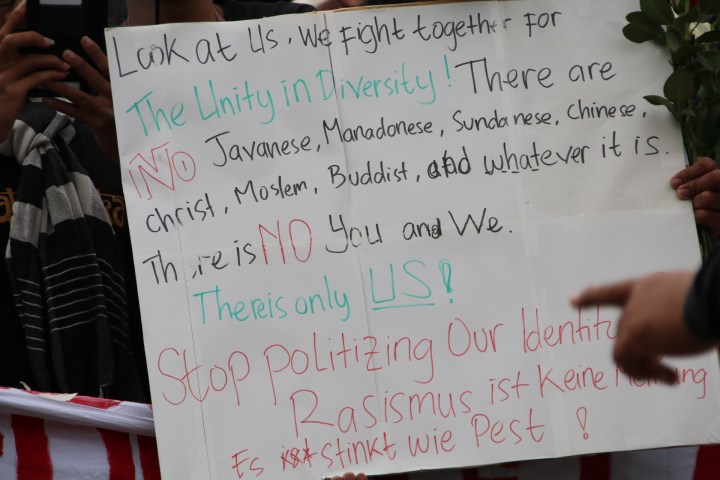 Look at Us, We Fight together For
The Unity in Diversity! There are
NO Javanese, Manadonese, Sundanese, Chinese,
Christ, Moslem, Buddist, and whatever it is.
There is NO You and We.
There is only US!
Stop Politizing Our
Rasismus ist Keine
Es stinkt wie Pest !